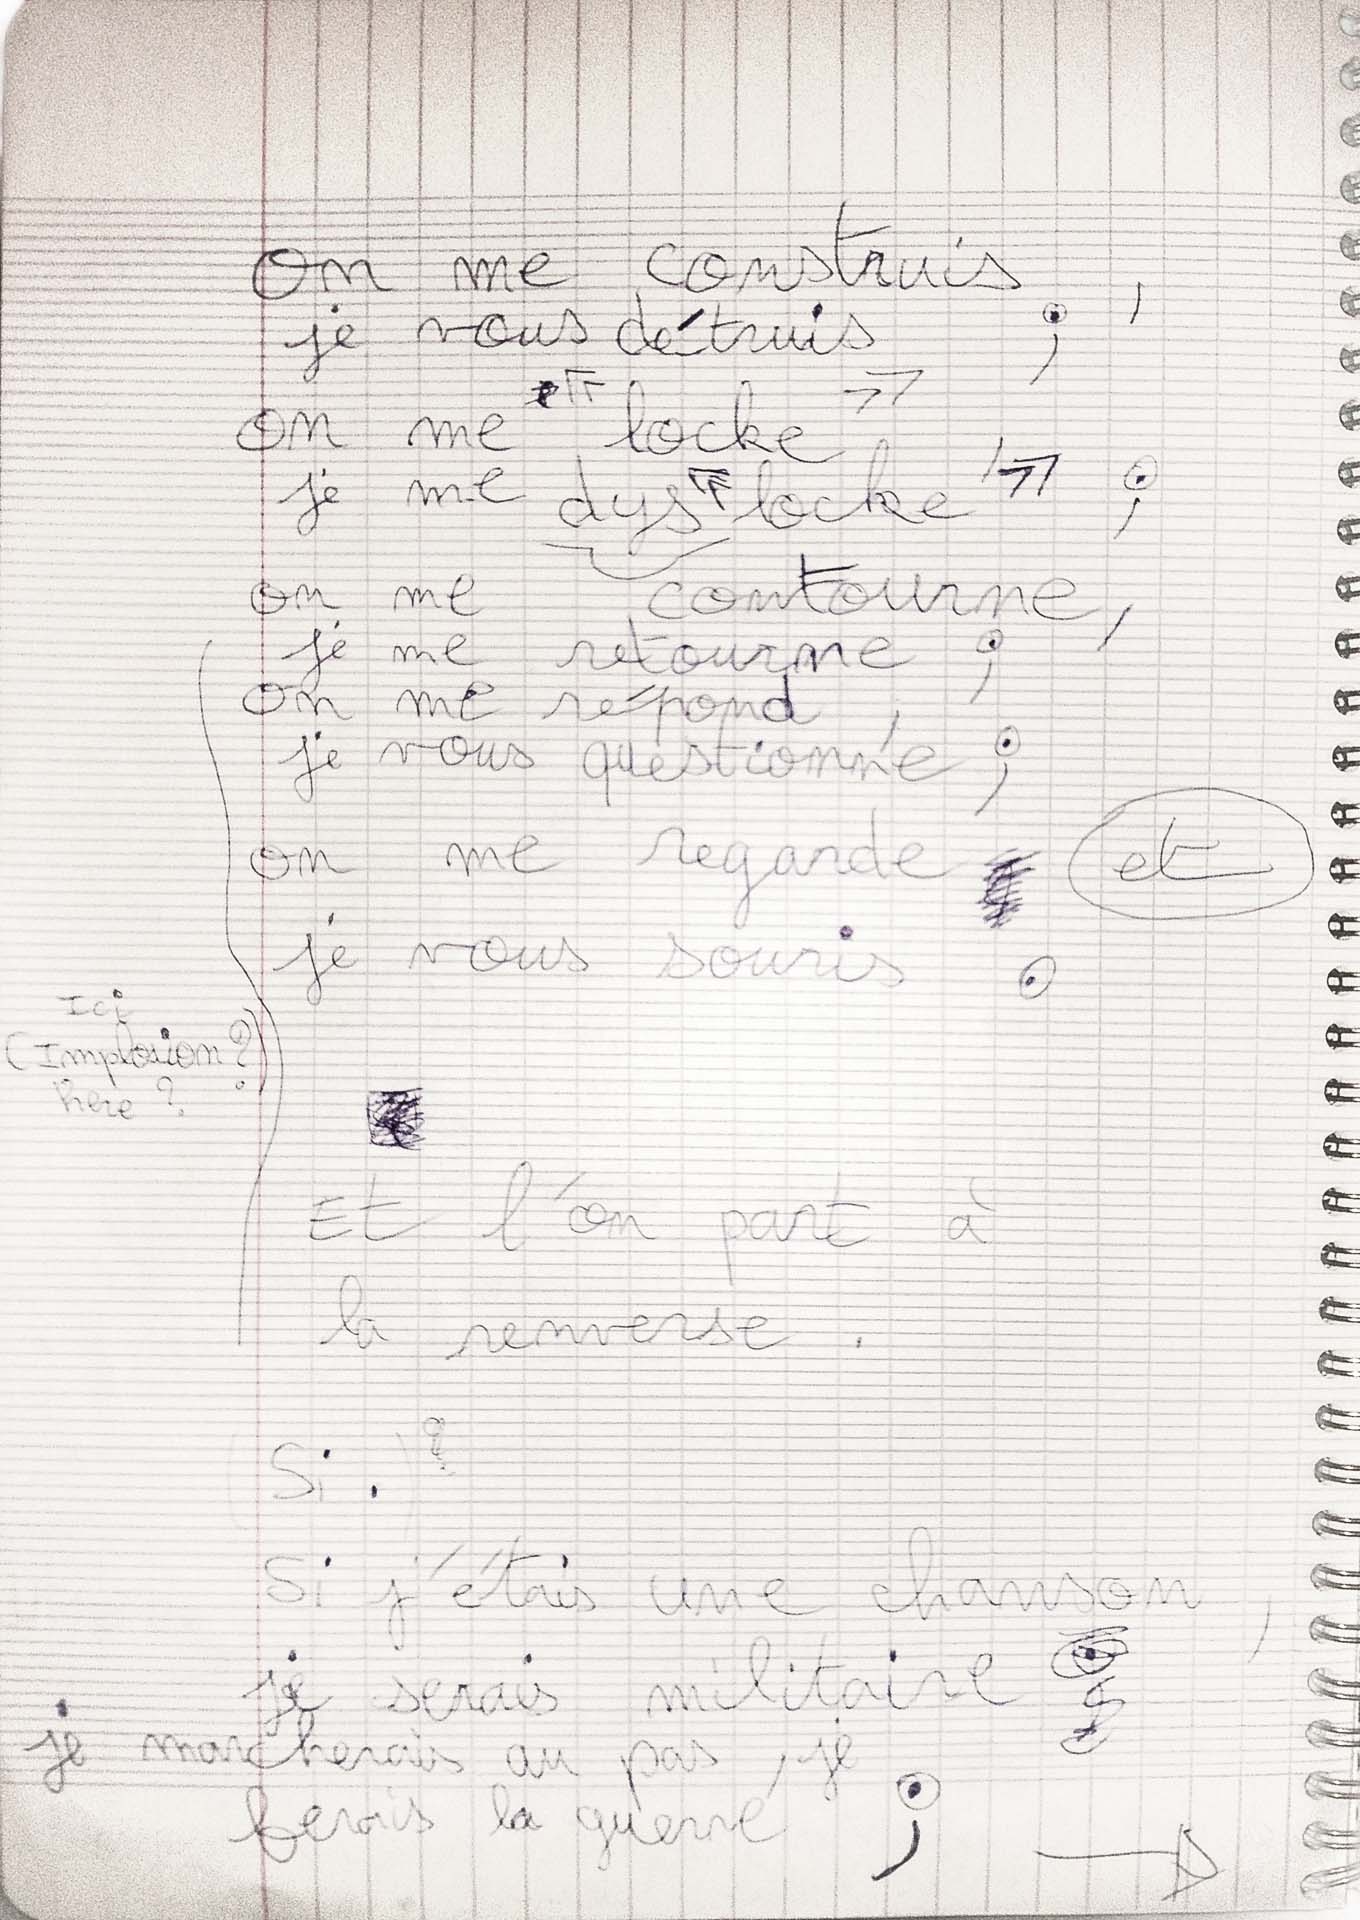 On me construis ,
je vous détruis ;
on me « locke » ,
je me dys « locke » ;
on me contourne,
je me retourne ;
on me répond ,
je vous questionne ;
on me regarde et
je vous souris .
Ici
(Implosion ?)
here ?
Et l'on part à
la renverse .
(Si .) ?
Si j'étais une chanson ,
je serais militaire ;
je marcherais au pas, je
ferais la guerre ;